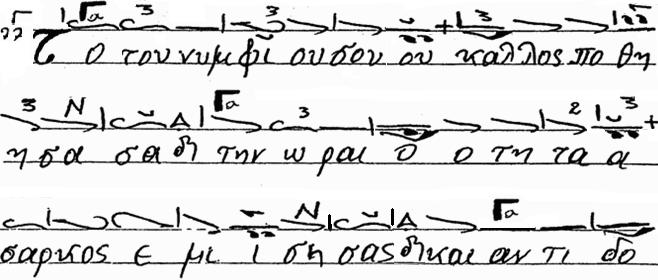 Τ ο του νυμφι ου σου ου καλλος πο θη
η σα σα δη την ω ραι ο ο τη τα α
σαρκος ε μι ι ση σας δη και αν τι δο